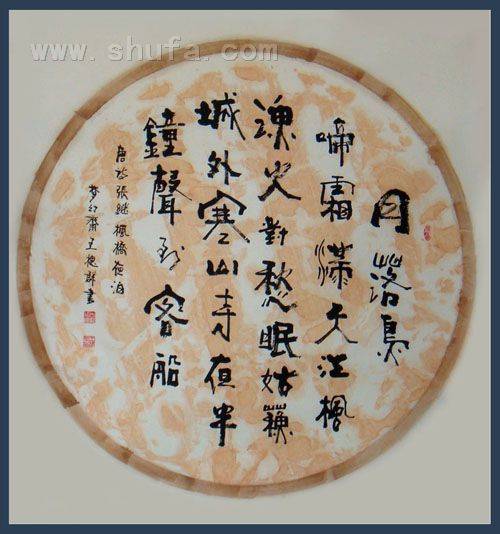 www.shufa.com
月落烏
啼霜滿天江楓
漁火對愁眠姑蘇
城外寒山寺夜半
鐘聲到客船
唐張继楓橋夜泊
梦幻齋王德書